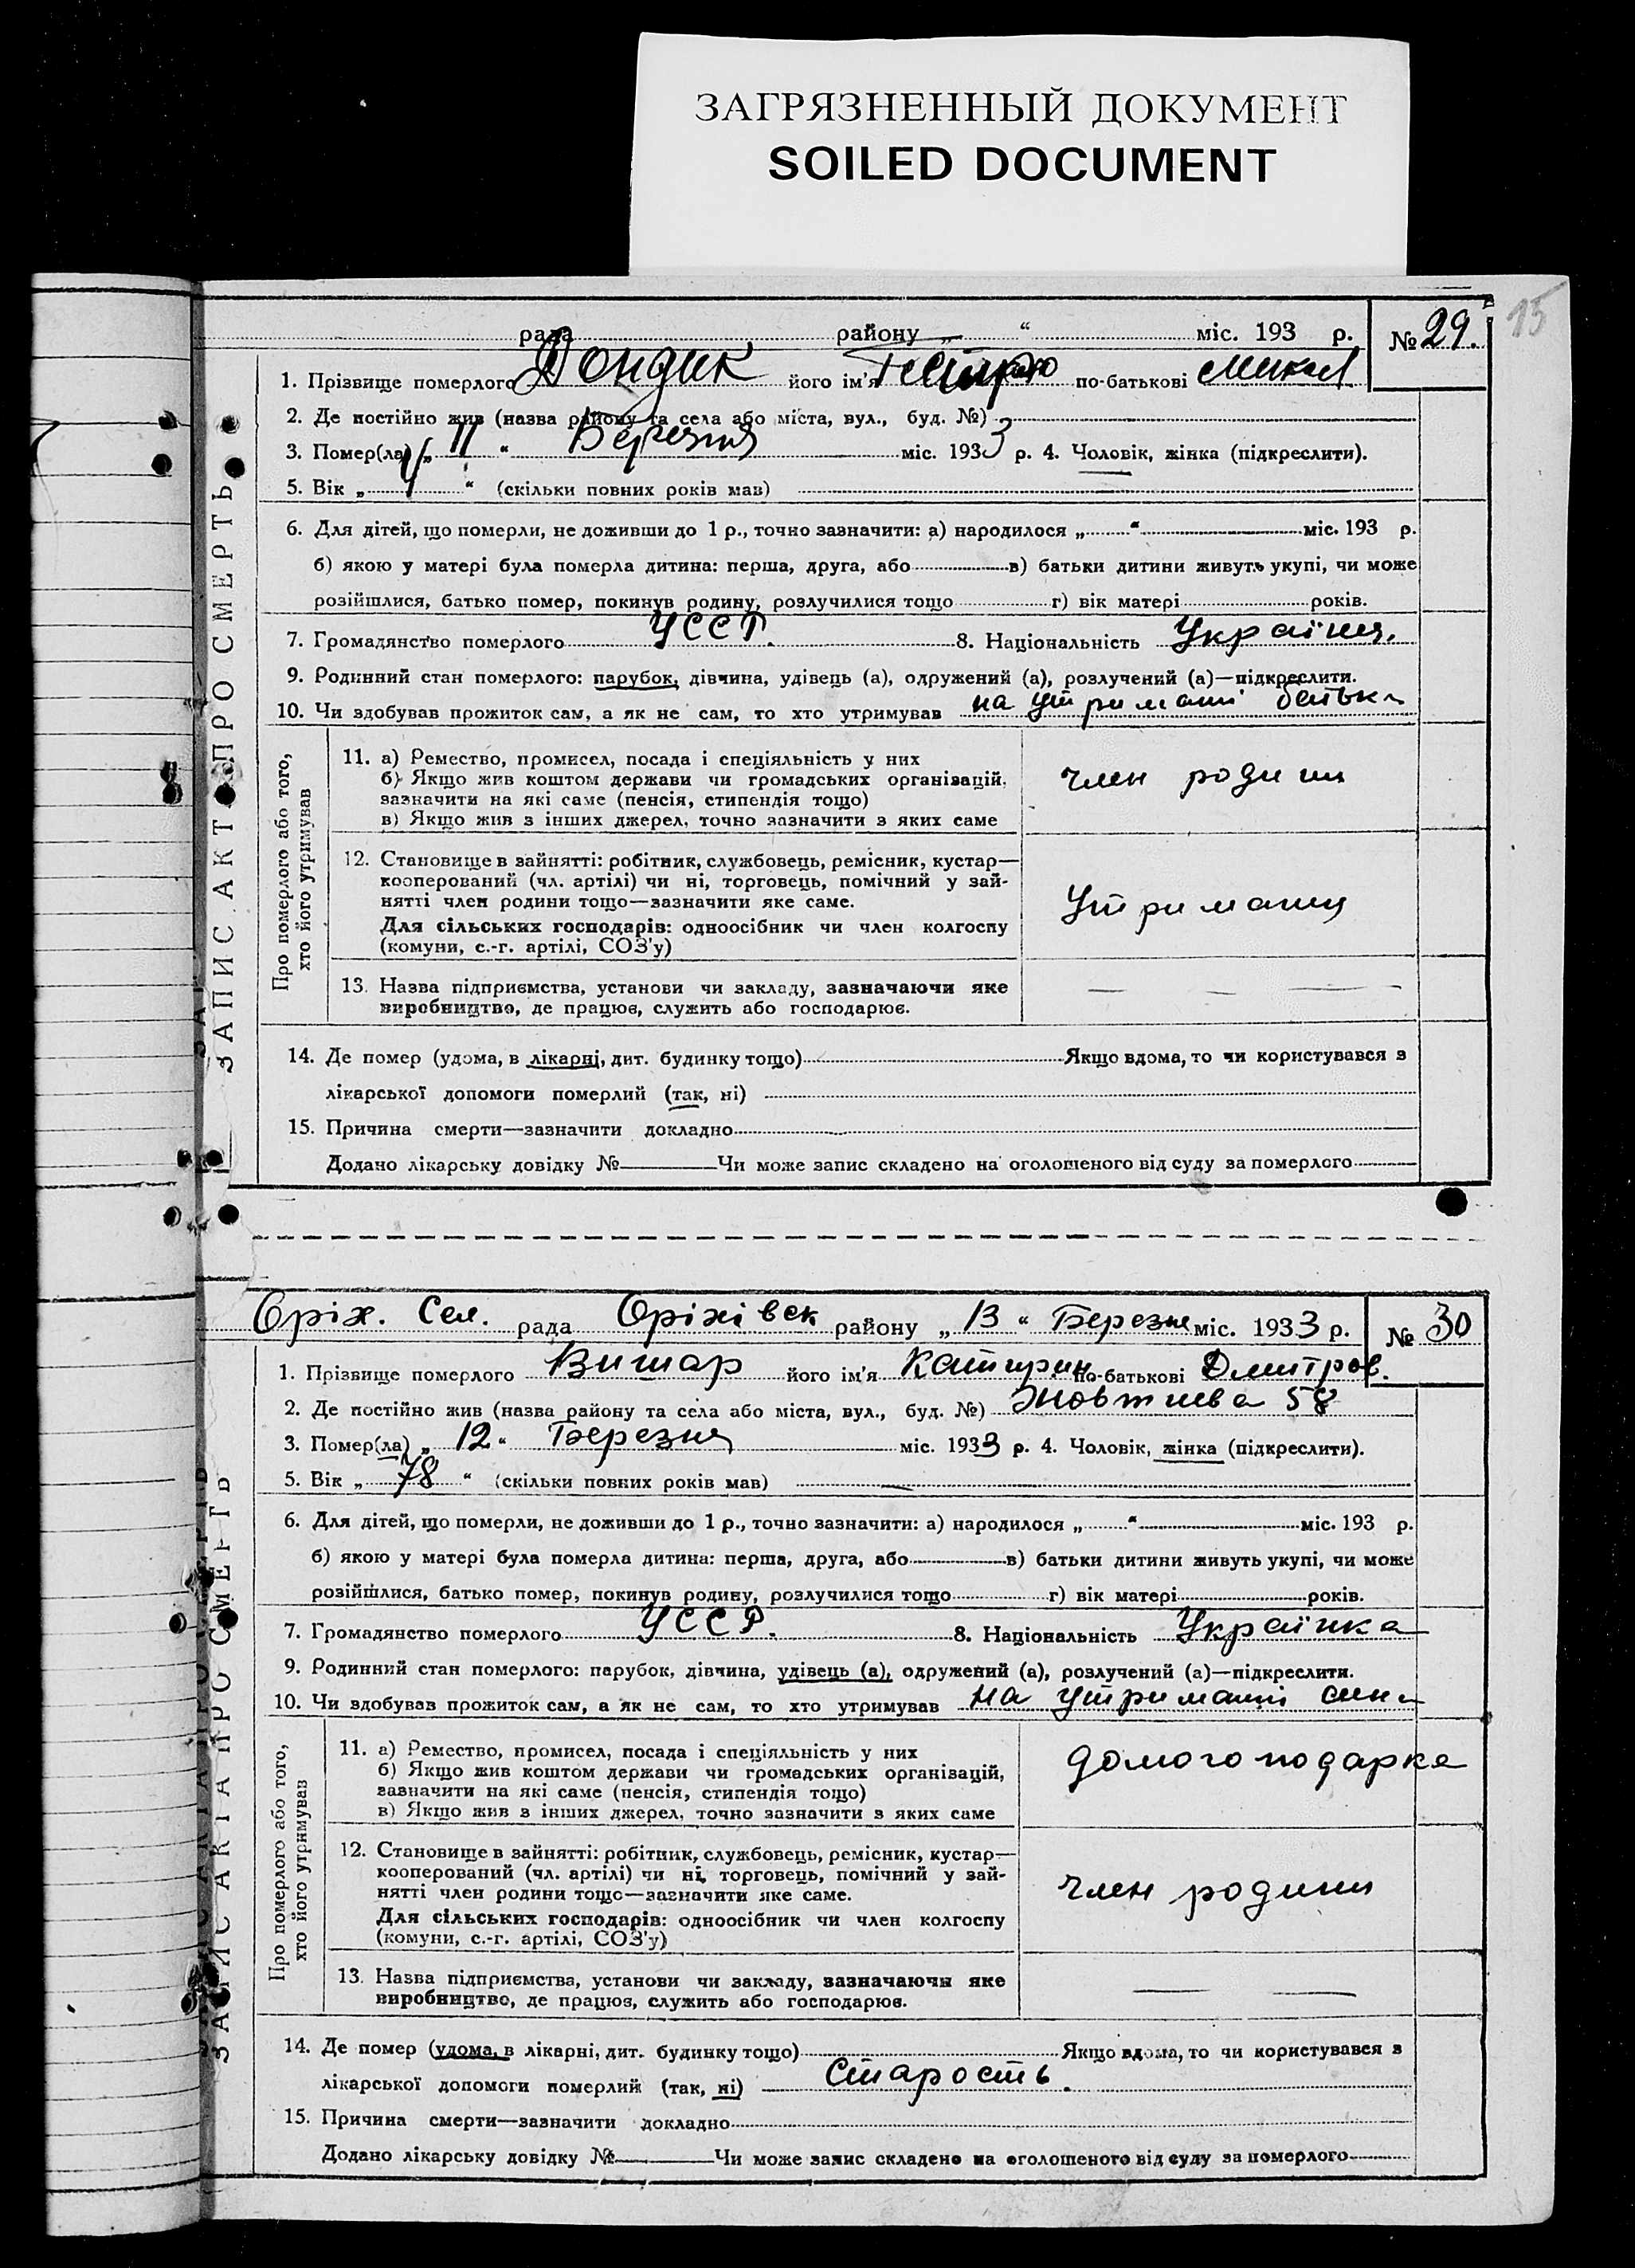 ЗАГРЯЗНЕННЫЙ ДОКУМЕНТ
SOILED DOCUMENT
15
рада району „ “ міс. 193 р. № 29.
1. Прізвище померлого Дондик його ім'я по-батькові Микол
2. Де постійно жив (назва району та села або міста, вул., буд. №)
3. Помер(ла) „ 11 “ Березня міс. 1933 р. 4. Чоловік, жінка (підкреслити).
5. Вік „ “ (скільки повних років мав)
6. Для дітей, що померли, не доживши до 1 р., точно зазначити: а) народилося „ “ міс. 193 р.
б) якою у матері була померла дитина: перша, друга, або в) батьки дитини живуть укупі, чи може
розійшлися, батько помер, покинув родину, розлучилися тощо г) вік матері років.
7. Громадянство померлого УССР. 8. Національність Україня.
9. Родинний стан померлого: парубок, дівчина, удівець (а), одружений (а), розлучений (а)—підкреслити.
10. Чи здобував прожиток сам, а як не сам, то хто утримував на утриманні батька
ЗАПИС АКТ ПРО СМЕРТЬ
Про померлого або того,
хто його утримував
11. а) Ремество, промисел, посада і спеціяльність у них
б) Якщо жив коштом держави чи громадських організацій,
зазначити на які саме (пенсія, стипендія тощо)
в) Якщо жив з інших джерел, точно зазначити з яких саме
член родини
12. Становище в зайнятті: робітник, службовець, ремісник, кустар—
кооперований (чл. артілі) чи ні, торговець, помічний у зай-
нятті член родини тощо—зазначити яке саме.
Для сільських господарів: одноосібник чи член колгоспу
(комуни, с.-г. артілі, СОЗ'у)
13. Назва підприємства, установи чи закладу, зазначаючи яке
виробництво, де працює, служить або господарює.
14. Де помер (удома, в лікарні, дит. будинку тощо) Якщо вдома, то чи користувався з
лікарської допомоги померлий (так, ні)
15. Причина смерти—зазначити докладно
Додано лікарську довідку № Чи може запис складено на оголошеного від суду за померлого
Оріх. Сел. рада Оріхівск району „ 13 “ Березня міс. 1933 р. № 30
1. Прізвище померлого його ім'я Катирин по-батькові Дмитров.
2. Де постійно жив (назва району та села або міста, вул., буд. №) Жовтнева 58
3. Помер(ла) „ 12 “ Березня міс. 1933 р. 4. Чоловік, жінка (підкреслити).
5. Вік „ 78 “ (скільки повних років мав)
6. Для дітей, що померли, не доживши до 1 р., точно зазначити: а) народилося „ “ міс. 193 р.
б) якою у матері була померла дитина: перша, друга, або в) батьки дитини живуть укупі, чи може
розійшлися, батько помер, покинув родину, розлучилися тощо г) вік матері років.
7. Громадянство померлого УССР. 8. Національність Українка
9. Родинний стан померлого: парубок, дівчина, удівець (а), одружений (а), розлучений (а)—підкреслити.
10. Чи здобував прожиток сам, а як не сам, то хто утримував на утриманні сина
ЗАПИС АКТ ПРО СМЕРТЬ
Про померлого або того,
хто його утримував
11. а) Ремество, промисел, посада і спеціяльність у них
б) Якщо жив коштом держави чи громадських організацій,
зазначити на які саме (пенсія, стипендія тощо)
в) Якщо жив з інших джерел, точно зазначити з яких саме
12. Становище в зайнятті: робітник, службовець, ремісник, кустар—
кооперований (чл. артілі) чи ні, торговець, помічний у зай-
нятті член родини тощо—зазначити яке саме.
Для сільських господарів: одноосібник чи член колгоспу
(комуни, с.-г. артілі, СОЗ'у)
член родини
13. Назва підприємства, установи чи закладу, зазначаючи яке
виробництво, де працює, служить або господарює.
14. Де помер (удома, в лікарні, дит. будинку тощо) Якщо вдома, то чи користувався з
лікарської допомоги померлий (так, ні) Старость.
15. Причина смерти—зазначити докладно
Додано лікарську довідку № Чи може запис складено на оголошеного від суду за померлого